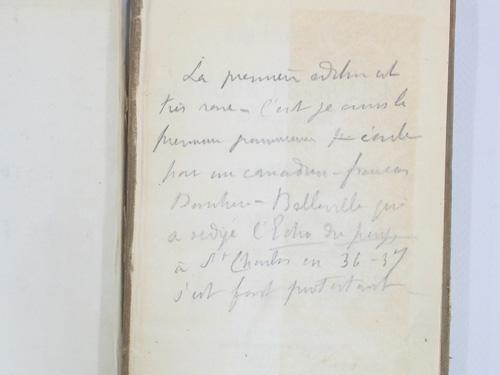 La première édition est
très rare - C'est je crois le
premier
par un canadien-français
Boucher-Belleville qui
a rédigé l'Echo du pays
à St Charles en 36-37
s'est fait protestant